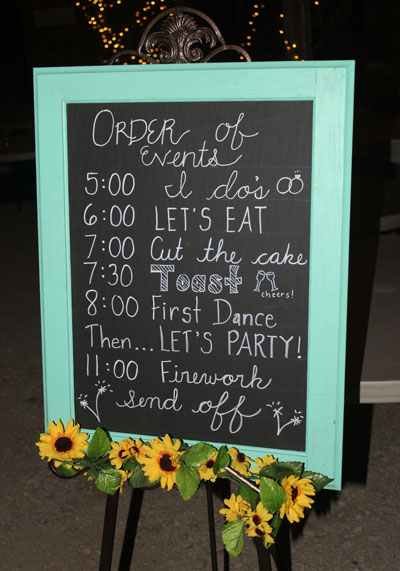 ORDER of
Events
5:00 I do's
6:00 LET'S EAT
7:00 Cut the cake
7:30 Toast cheers!
8:00 First Dance
Then... LET'S PARTY!
11:00 Firework
send off